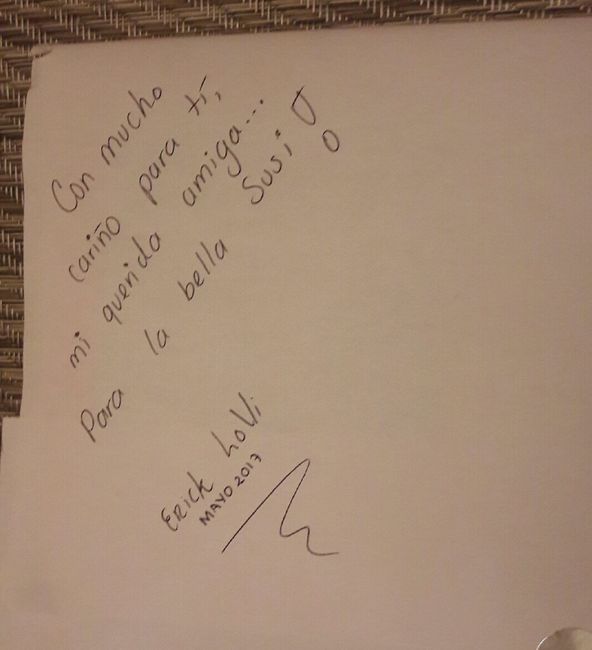 Con mucho
cariño para tí,
mi querida amiga...
Para la bella Susi!
Erick LoVi
MAYO 2017